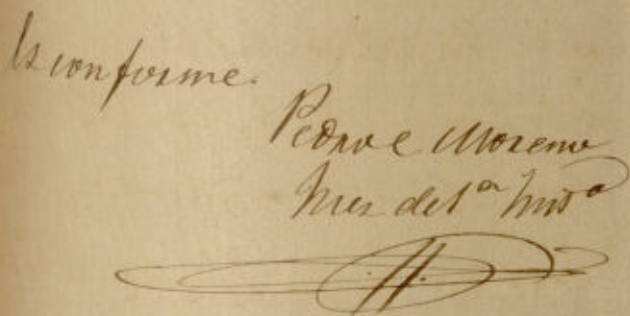 Es conforme.
Pedro e Moreno
Juez de 1ª Insᵃ